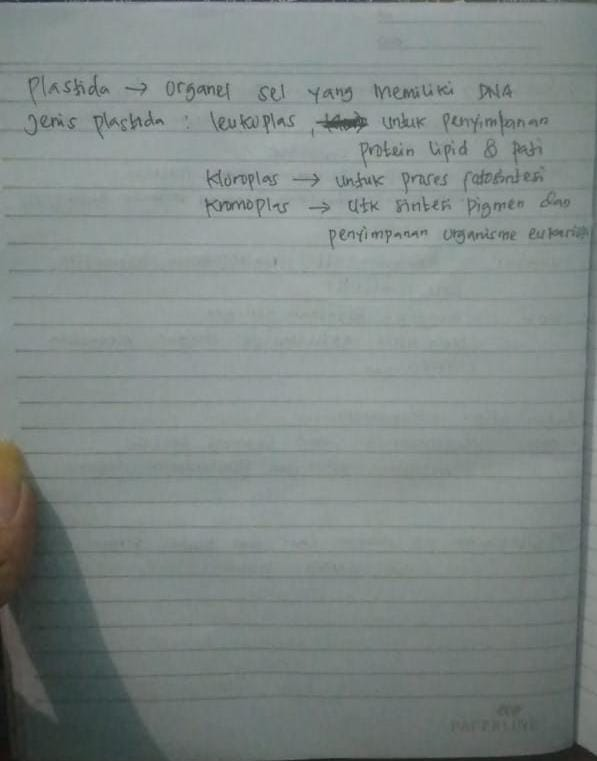 Plastida → organel sel yang memiliki DNA
Jenis plastida : leukoplas, untuk penyimpanan
protein lipid & pati
Kloroplas → untuk proses fotosintesi
Kromoplas → utk sintesi pigmen dan
penyimpanan organisme eukariotik
PAPERLINE